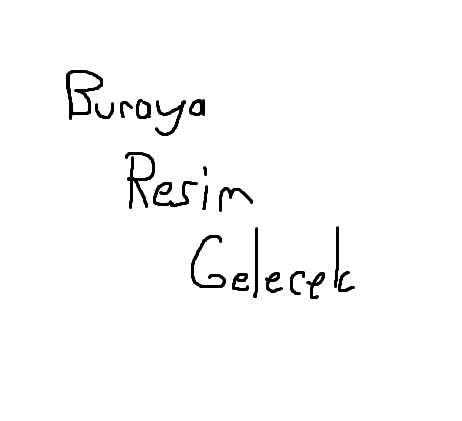 Buraya
Resim
Gelecek